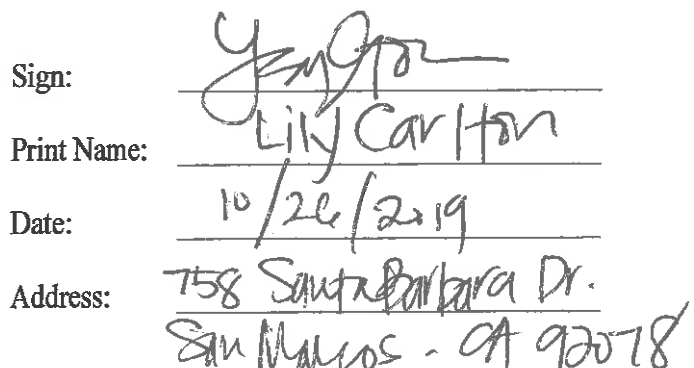 Sign:
Print Name: Lily Carlton
Date: 10/26/2019
Address: 758 Santa Barbara Dr.
San Marcos - CA 92078